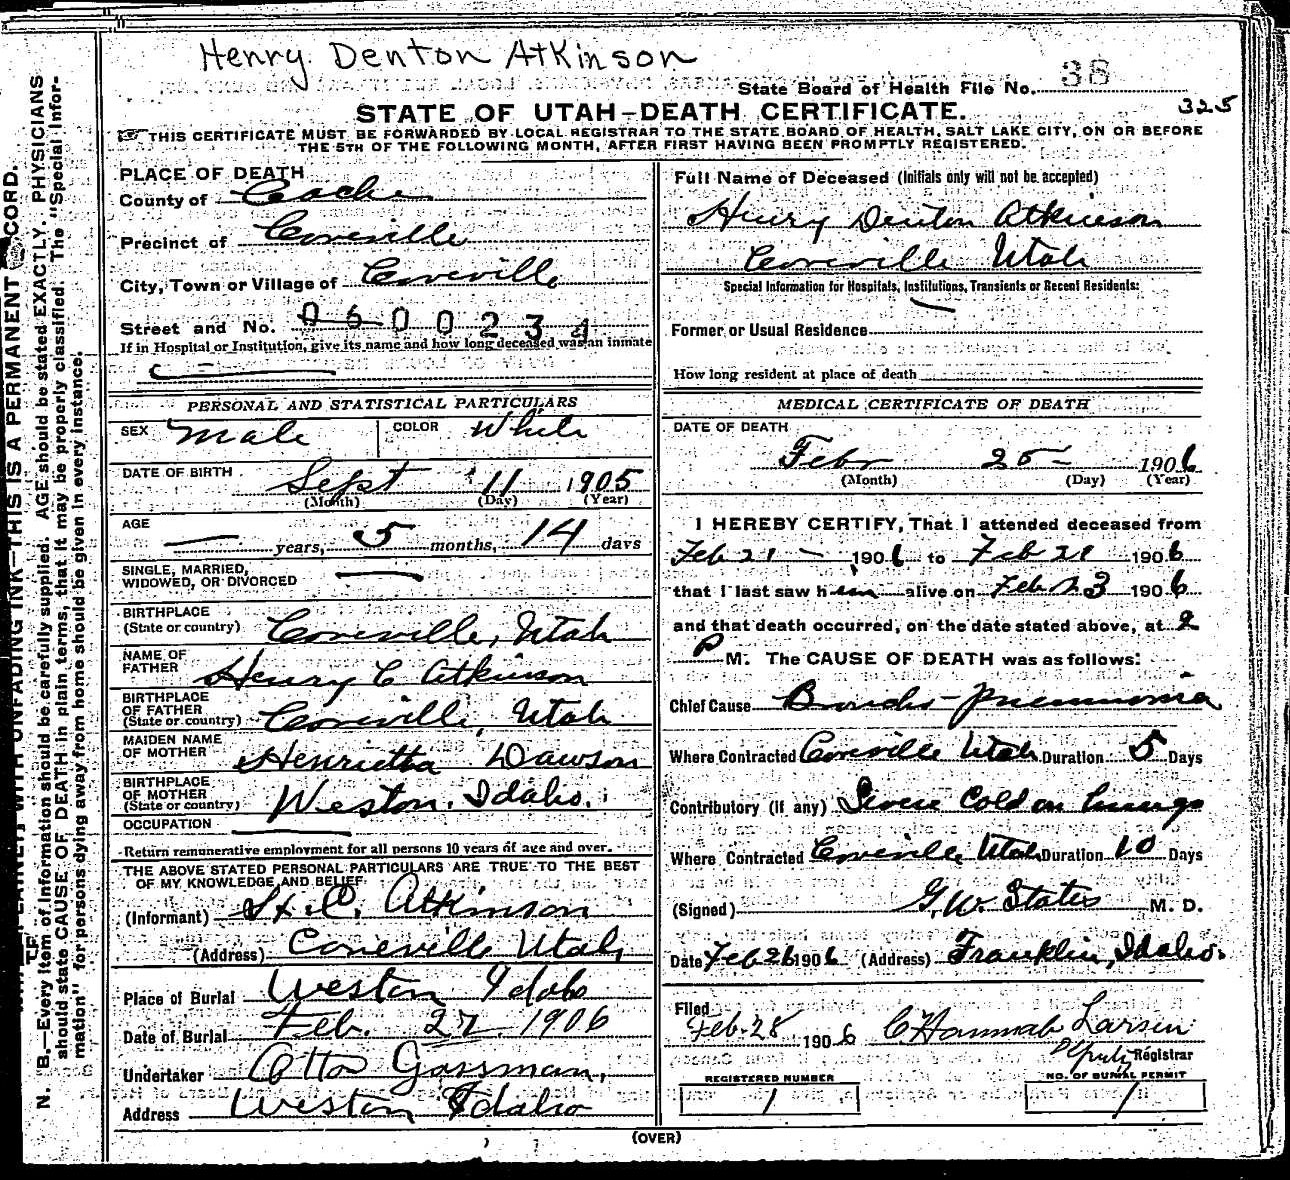 Henry Denton Atkinson
State Board of Health File No. 38
325
STATE OF UTAH—DEATH CERTIFICATE.
THIS CERTIFICATE MUST BE FORWARDED BY LOCAL REGISTRAR TO THE STATE BOARD OF HEALTH, SALT LAKE CITY, ON OR BEFORE
THE 5TH OF THE FOLLOWING MONTH, AFTER FIRST HAVING BEEN PROMPTLY REGISTERED.
PLACE OF DEATH
County of Cache
Precinct of Coveville
City, Town or Village of Coveville
Street and No. 0600234
If in Hospital or Institution, give its name and how long deceased was an inmate
PERSONAL AND STATISTICAL PARTICULARS
SEX Male COLOR White
DATE OF BIRTH Sept 11 1905
(Month) (Day) (Year)
AGE — years, 5 months, 14 days
SINGLE, MARRIED,
WIDOWED, OR DIVORCED —
BIRTHPLACE
(State or country) Coveville, Utah
NAME OF
FATHER Henry C Atkinson
BIRTHPLACE
OF FATHER
(State or country) Coveville, Utah
MAIDEN NAME
OF MOTHER Henrietta Dawson
BIRTHPLACE
OF MOTHER
(State or country) Weston, Idaho.
OCCUPATION —
Return remunerative employment for all persons 10 years of age and over.
THE ABOVE STATED PERSONAL PARTICULARS ARE TRUE TO THE BEST
OF MY KNOWLEDGE AND BELIEF
(Informant) H.C. Atkinson
(Address) Coveville Utah,
Place of Burial Weston Idaho
Date of Burial Feb. 27 1906
Undertaker Otto Gassman,
Address Weston Idaho
Full Name of Deceased (Initials only will not be accepted)
Henry Denton Atkinson
Coveville Utah
Special Information for Hospitals, Institutions, Transients or Recent Residents:
Former or Usual Residence
How long resident at place of death
MEDICAL CERTIFICATE OF DEATH
DATE OF DEATH
Febr 25 1906
(Month) (Day) (Year)
I HEREBY CERTIFY, That I attended deceased from
Feb 21 — 1906 to Feb 21 1906
that I last saw him alive on Feb 23 1906
and that death occurred, on the date stated above, at 2
P M. The CAUSE OF DEATH was as follows:
Chief Cause Broncho-pneumonia
Where Contracted Coveville Utah Duration 5 Days
Contributory (if any) Severe Cold on lungs
Where Contracted Coveville Utah Duration 10 Days
(Signed) G. W. States M. D.
Date Feb 26 1906 (Address) Franklin, Idaho.
Filed
Feb. 28 1906 C Hannah Larsen
Deputy Registrar
REGISTERED NUMBER
1
NO. OF BURIAL PERMIT
1
(OVER)
CORD.
THIS IS A PERMANENT
WITH UNFADING INK
N. B.—Every item of information should be carefully supplied. AGE should be stated EXACTLY. PHYSICIANS
should state CAUSE OF DEATH in plain terms, that it may be properly classified. The "Special Infor-
mation" for persons dying away from home should be given in every instance.